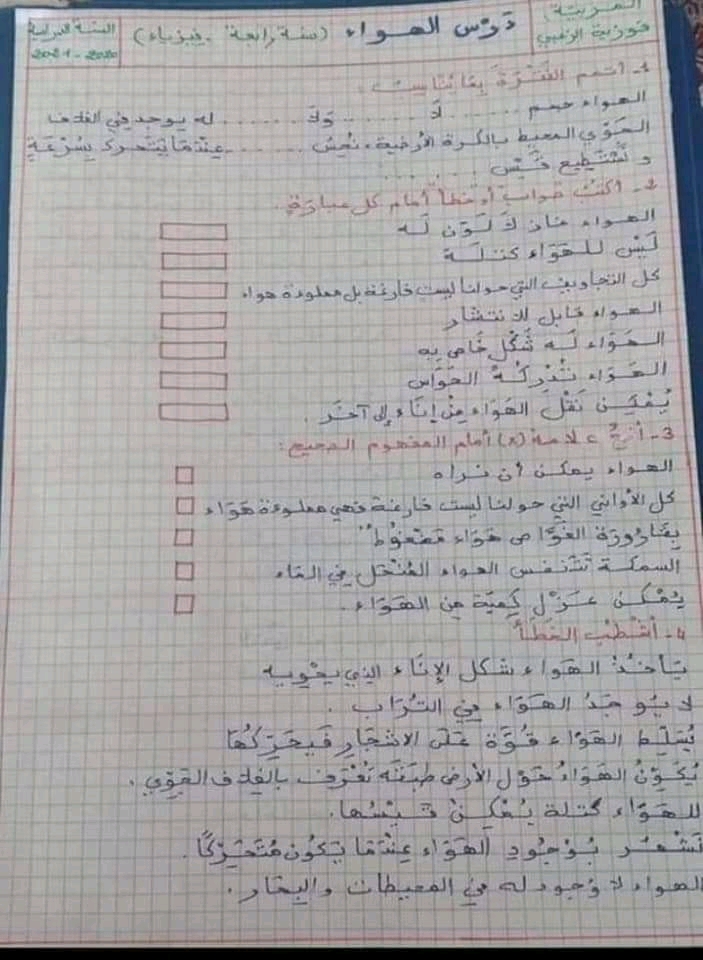 المربية:
فوزية الزغبي
درس الهواء (سنة رابعة - فيزياء)
السنة الدراسية
2020 - 2021
1- أتمم الفقرة بما يناسب:
الهواء جسم ....... لا ....... ولا ....... له يوجد في الغلاف
الجوّي المحيط بالكرة الأرضية، نحسّ ....... عندما يتحرك بسرعة
و نستطيع قيس .......
2- أكتب صواب أو خطأ أمام كل عبارة.
الهواء غاز لا لون له
ليس للهواء كتلة
كل التجاويف التي حولنا ليست فارغة بل مملوءة هواء
الهواء قابل للانتشار
الهواء له شكل خاص به
الهواء تدركه الحواس
يمكن نقل الهواء من إناء إلى آخر.
3- أضع علامة (x) أمام المفهوم الصحيح:
الهواء يمكن أن نراه
كل الأواني التي حولنا ليست فارغة فهي مملوءة هواء
بقارورة الغوّاص هواء مضغوط"
السمكة تتنفس الهواء المنحل في الماء
يمكن عزل كمية من الهواء.
4- أشطب الخطأ
يأخذ الهواء شكل الإناء الذي يحويه
لا يوجد الهواء في التراب.
يسلّط الهواء قوّة على الأشجار فيحرّكها
يكوّن الهواء حول الأرض طبقة تعرف بالغلاف الجوّي.
للهواء كتلة يمكن قيسها.
نشعر بوجود الهواء عندما يكون متحرّكا.
الهواء لا وجود له في المحيطات والبحار.